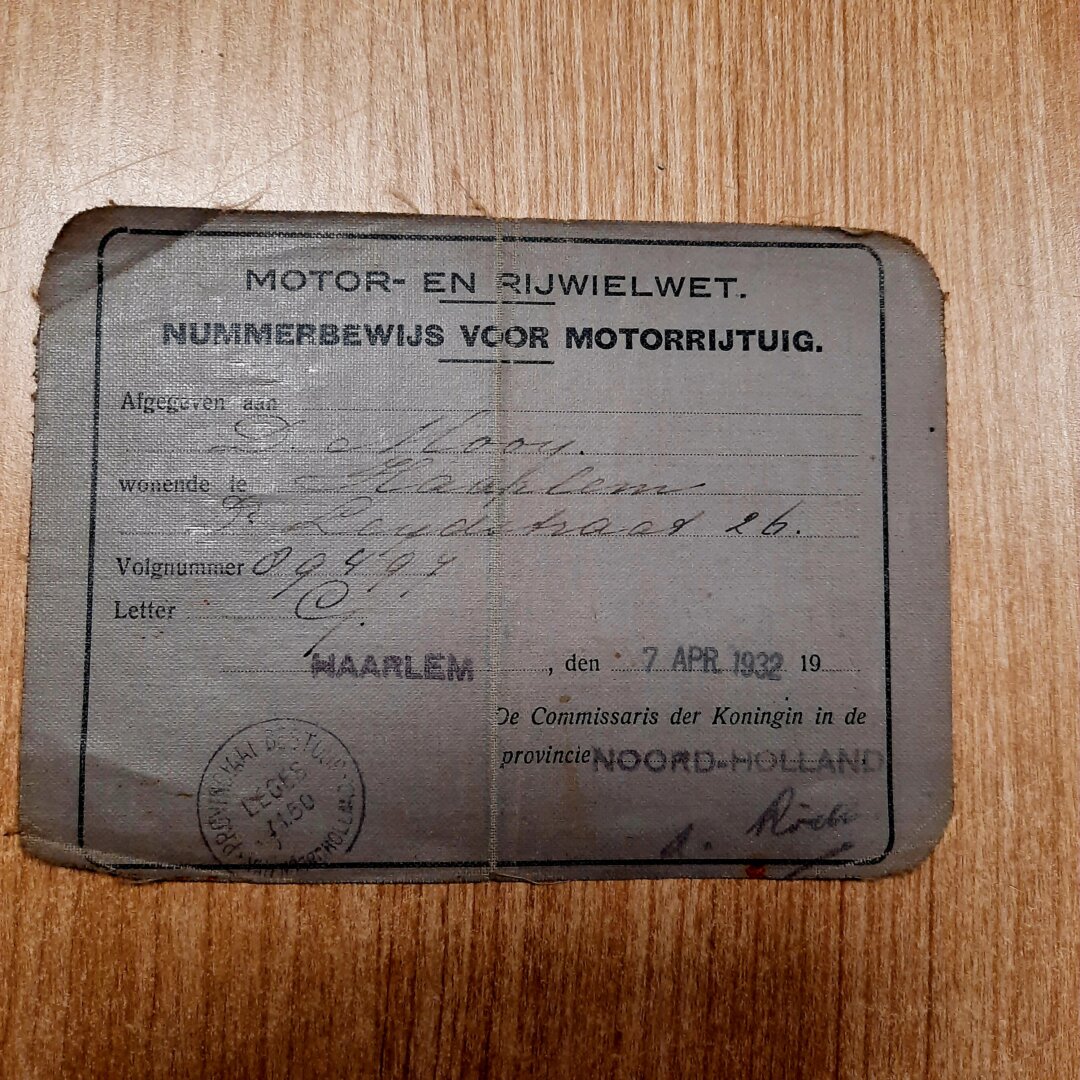 MOTOR- EN RIJWIELWET.
NUMMERBEWIJS VOOR MOTORRIJTUIG.
Afgegeven aan
D. Mooy.
wonende te Haarlem
Leydstraat 26.
Volgnummer 09494
Letter G.
HAARLEM, den 7 APR. 1932 19
De Commissaris der Koningin in de
provincie NOORD-HOLLAND
PROVINCIAAL BESTUUR
LEGES
f 1.50
NOORD-HOLLAND